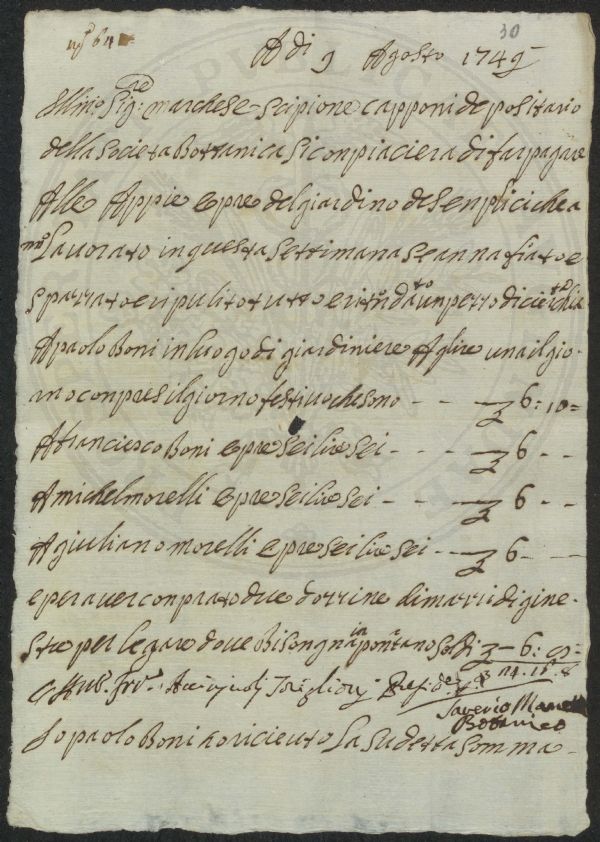 n° 64 30
A di 9 Agosto 1749
Illmo Sig:re marchese scipione capponi depositario
della societa Bottanica si conpiaciera di far pagare
Alle Appie opre del giardino de senplici che a
nno Lauorato in questa settimana se anna fiato e
sparrato e ripulito tutto e
A paolo Boni in luogo di giardiniere A lire una il gio-
rno conpresi il giorno festiuo che sono - - 6: 10=
A franciesco Boni opre sei lire sei - - - 6 - -
A michel morelli opre sei lire sei - - - 6 - -
A giuliano morelli opre sei lire sei - - 6 - -
e per auer conprato due dozzine di mazzi di gine-
stre per legare doue Bisongnia inportano soldi - 6:
Preside
Saverio Manetti
Botanico
Io paolo Boni o riceuto La sudetta somma -